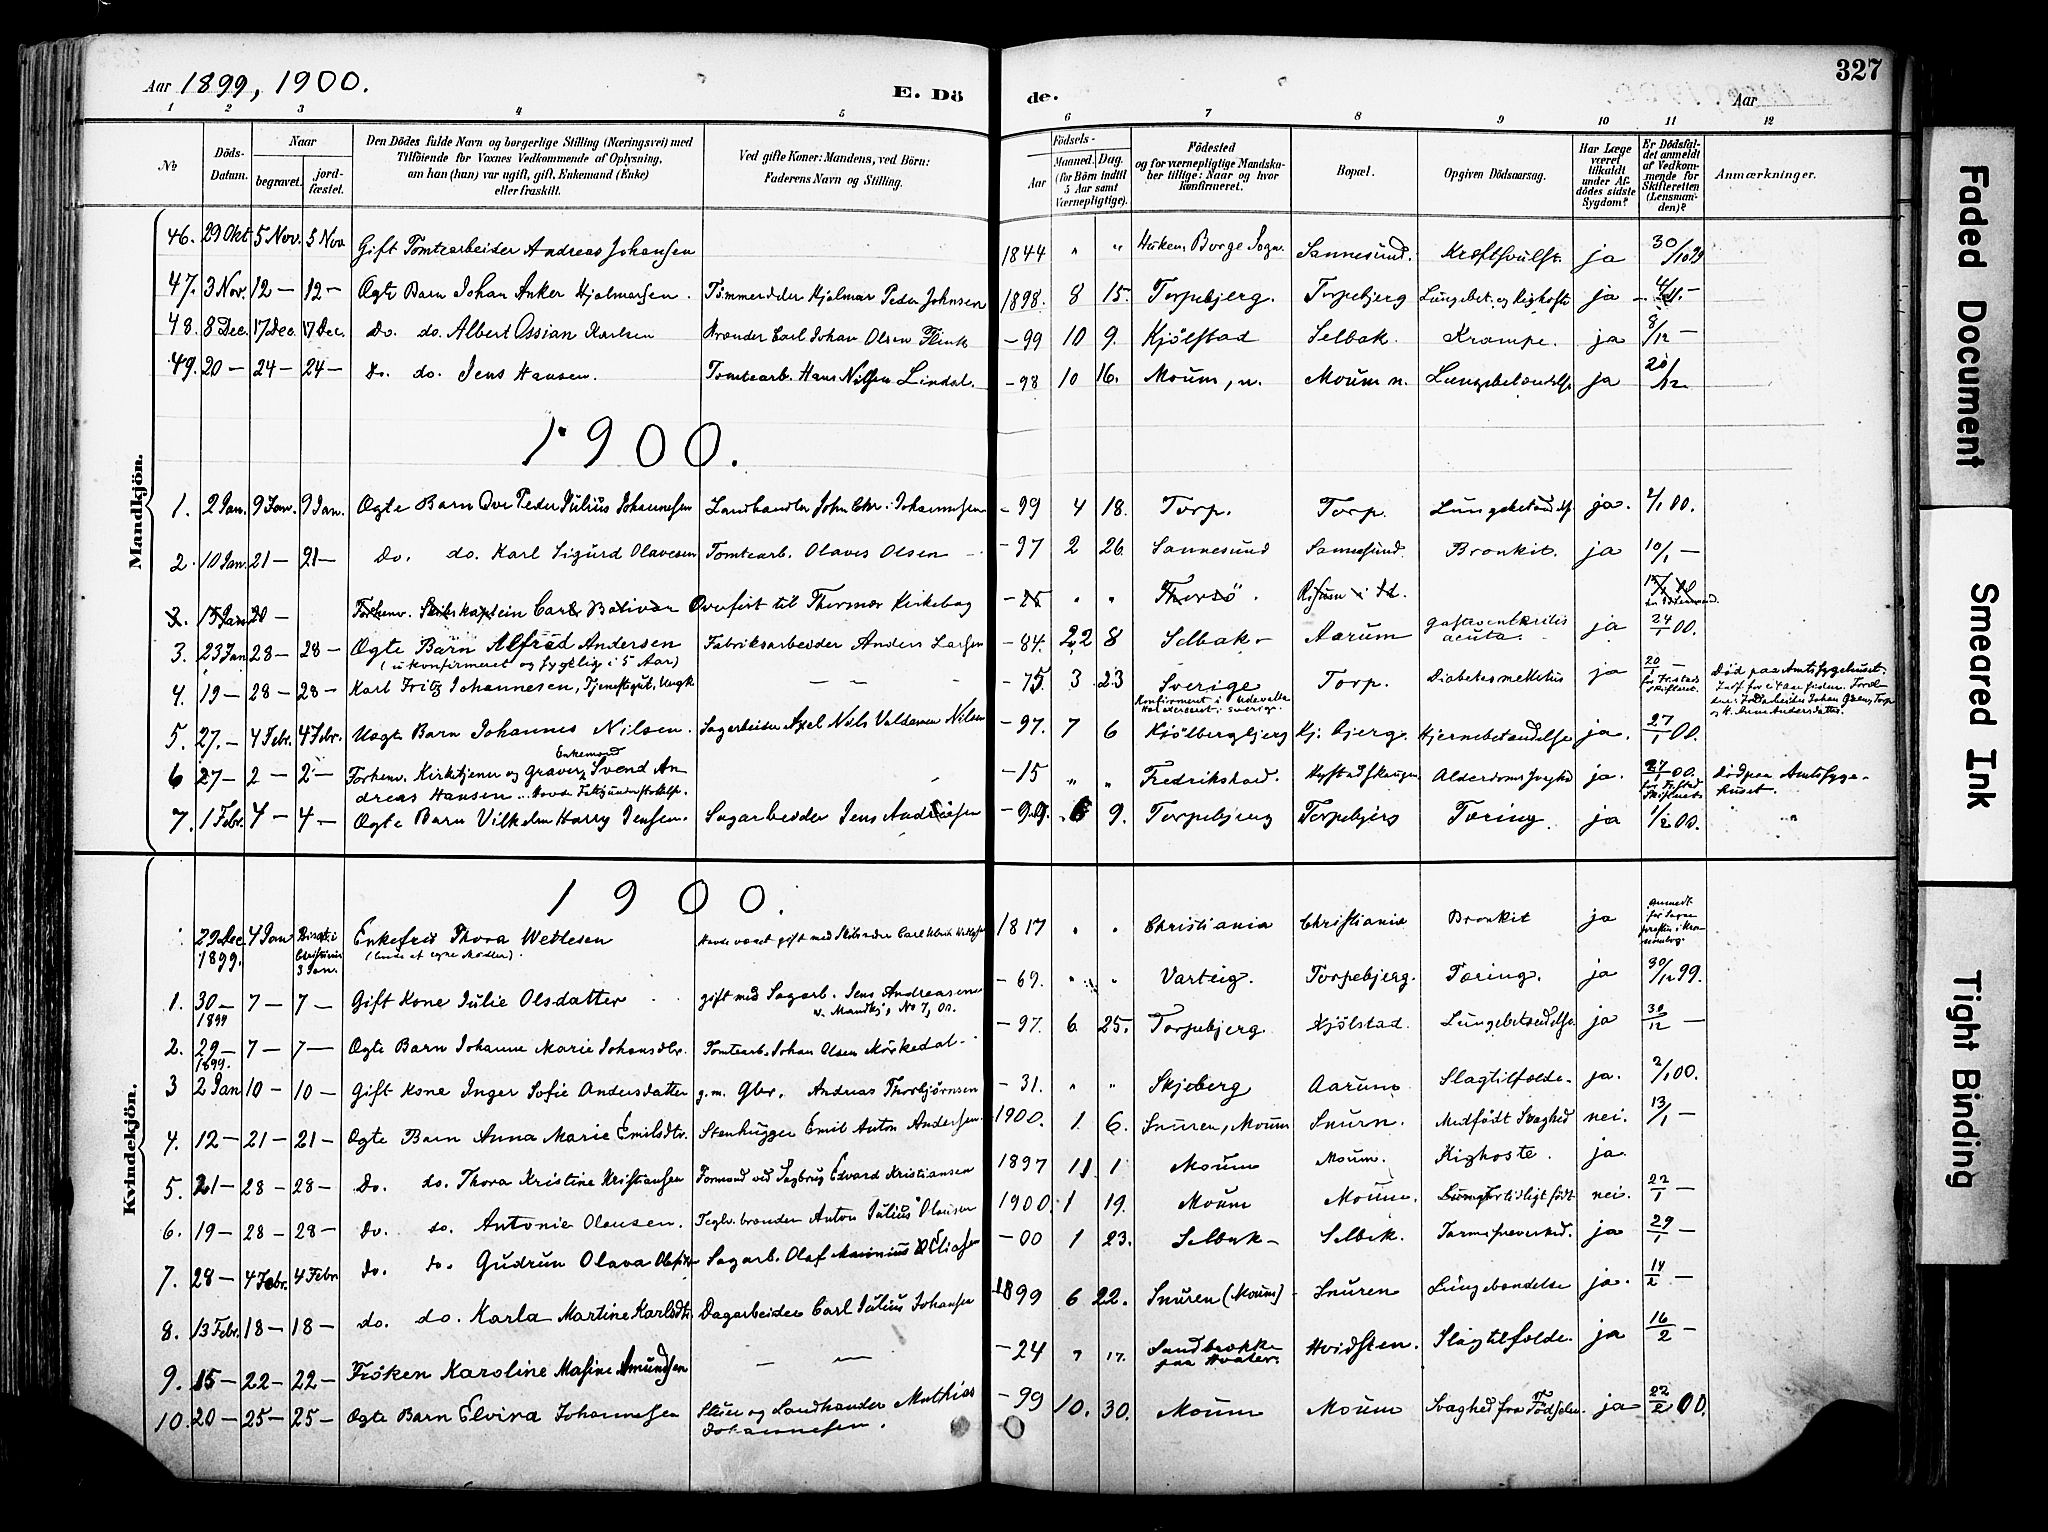 Aar 1899, 1900.
E. Dö
de.
Aar
327
1 2 3 4 5 6 7 8 9 10 11 12
No
Döds-
Datum.
Naar
begravet.
jord-
fæstet.
Den Dödes fulde Navn og borgerlige Stilling (Næringsvei) med
Tilföiende for Voxnes Vedkommende af Oplysning,
om han (hun) var ugift, gift, Enkemand (Enke)
eller fraskilt.
Ved gifte Koner: Mandens, ved Börn:
Faderens Navn og Stilling.
Födsels-
Aar
Maaned. Dag.
(for Börn indtil
5 Aar samt
Værnepligtige).
Födested
og for værnepligtige Mandska-
ber tillige: Naar og hvor
konfirmeret.
Bopæl.
Opgiven Dödsaarsag.
Har Læge
været
tilkaldt
under Af-
dödes sidste
Sygdom?
Er Dödsfal-
det anmeldt
af Vedkom-
mende for
Skifteretten
(Lensman-
den)?
Anmærkninger.
Mandkjön.
46. 29 Okt 5 Nov. 5 Nov Gift Tomtearbeider Andreas Johansen 1844 " " Borge Sogn. Sannesund. Kræftsvulst. ja 30/10 99
47. 3 Nov. 12 — 12 — Ægte Barn Johan Anker Hjalmarsen. Hjalmar Peder Johnsen 1898. 8 15. Torpebjerg. Torpebjerg Lungebet. og Kighoste ja
48. 8 Dec. 17 Dec. 17 Dec. Do. do. Albert Ossian Karlsen Brænder Carl Johan Olsen Flink — 99 10 9. Kjölstad Selbak. Krampe. ja 8/12 —
49. 20 — 24 — 24 — Do. do. Jens Hansen. Tomtearb. Hans Nilsen Lindal. — 98 10 16. Moum, n. Moum n. Lungebetændelse ja 20/12
1900.
1. 2 Jan. 9 Jan. 9 Jan. Ægte Barn Ove Peder Julius Johannesen Landhandler John Chr. Johannesen — 99 4 18. Torp. Torp. Lungebetændelse ja. 2/1 00.
2. 10 Jan. 21 — 21 — Do. do. Karl Sigurd Olavesen Tomtearb. Olaves Olsen — 97 2 26 Sannesund Sannesund. Bronkit. ja 10/1 —
3. 15 Jan 20 — Forhenv. Skibskaptein Carl Bolivar Overfört til Thermæ Kirkebog — 25 " " Thorsö. Risum
3. 23 Jan 28 — 28 — Ægte Barn Alfred Andersen Fabriksarbeider Anders Larsen — 84. 2 8 Selbak — Aarum acuta. ja 24/1 00.
(ukonfirmeret og sygelig i 5 Aar)
4. 19 — 28 — 28 — Karl Fritz Johannesen, Tjenestegut, Ungk — — — 75 3 23 Sverige Torp. Diabetes mellitus ja 20/1 — Död paa Amtssygehuset.
Konfirmeret i Udevalla
5. 27. — 4 Febr. 4 Febr. Uægte Barn Johannes Nilsen. Sagarbeider Axel Nils Valdemar Nilsen — 97. 7 6 Kjölbergbjerg Kj. bjerg. Hjernebetændelse ja. 27/1 00.
6 27 — 2 — 2 — Forhenv. Kirketjener og Graver, Enkemand Svend An
dreas Hansen — 15 " " Fredrikstad. Alderdomssvaghed ja. 27/1 00. Död paa Amtssyge-
huset.
7. 1 Febr. 4 — 4 — Ægte Barn Vilhelm Harry Jensen. Sagarbeider Jens Andreasen — 99. 6 9. Torpebjerg Torpebjerg Tæring. ja 1/2 00. "
Kvindekjön.
1900.
29 Dec. 1899. 4 Jan Enkefru Thora Wetlesen 1817 " " Christiania Christiania Bronkit ja
1. 30 — 1899 7 — 7 — Gift Kone Julie Olsdatter gift med Sagarb. Jens Andreasen — 69. " " Varteig. Torpebjerg. Tæring. ja 30/12 99.
v. Mandkj, No 7, 00.
2. 29 — 1899. 7 — 7 — Ægte Barn Johanne Marie Johansdtr. Tomtearb. Johan Olsen Mörkedal — 97. 6 25. Torpebjerg Kjölstad. Lungebetændelse ja 30/12 —
3 2 Jan 10 — 10 — Gift Kone Inger Sofie Andersdatter g.m. Gbr. Andreas Thorbjørnsen — 31. " " Skjeberg Aarum Slagtilfælde. ja. 2/1 00.
4. 12 — 21 — 21 — Ægte Barn Anna Marie Emilsdtr. Stenhugger Emil Anton Andersen 1900. 1 6. Snuren, Moum Snurn. Medfödt Svaghed nei. 13/1 —
5. 21 — 28 — 28 — Do. do. Thora Kristine Kristiansen Formand ved Sagbrug Edvard Kristiansen 1897 11 1 Moum Moum. Kighoste. ja.
6. 19 — 28 — 28 — Do. do. Antonie Olausen. Teglv. brænder Anton Julius Olausen 1900. 1 19. Moum Moum. födt nei. 22/1 —
7. 28 — 4 Febr. 4 Febr Do. do. Gudrun Olava Olafsdtr Sagarb. Olaf Marinius Eliasen — 00 1 23. Selbak — Selbak. ja 29/1 —
8. 13 Febr. 18 — 18 — do. do. Karla Martine Karlsdtr. Dagarbeider Carl Julius Johansen 1899 6 22. Snuren (Moum) Snuren Lungebændelse ja. 14/2 —
9. 15 — 22 — 22 — Fröken Karoline Masine Amundsen — — — 24 " 17. Sandbrække Hvidsten. Slagtilfælde. ja 16/2 —
paa Hvaler.
10. 20 — 25 — 25 — Ægte Barn Elvira Johannesen og Landhandler Mathias — 99 10. 30. Moum Moum Svaghed fra Födselen ja 22/2 00.
Johannesen.
Faded Document
Smeared Ink
Tight Binding